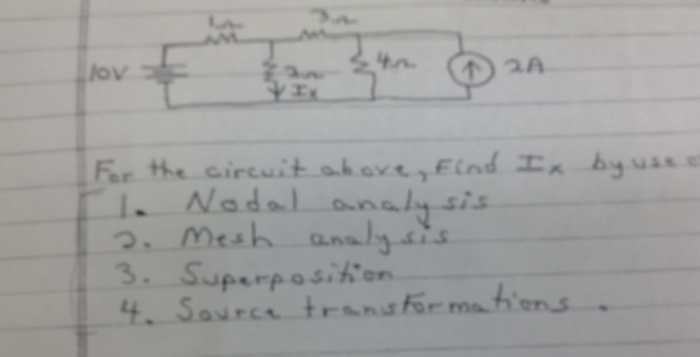 1Ω 3Ω
10V 2Ω 4Ω 2A
Ix
For the circuit above, Find Ix by use
1. Nodal analysis
2. Mesh analysis
3. Superposition
4. Source transformations.